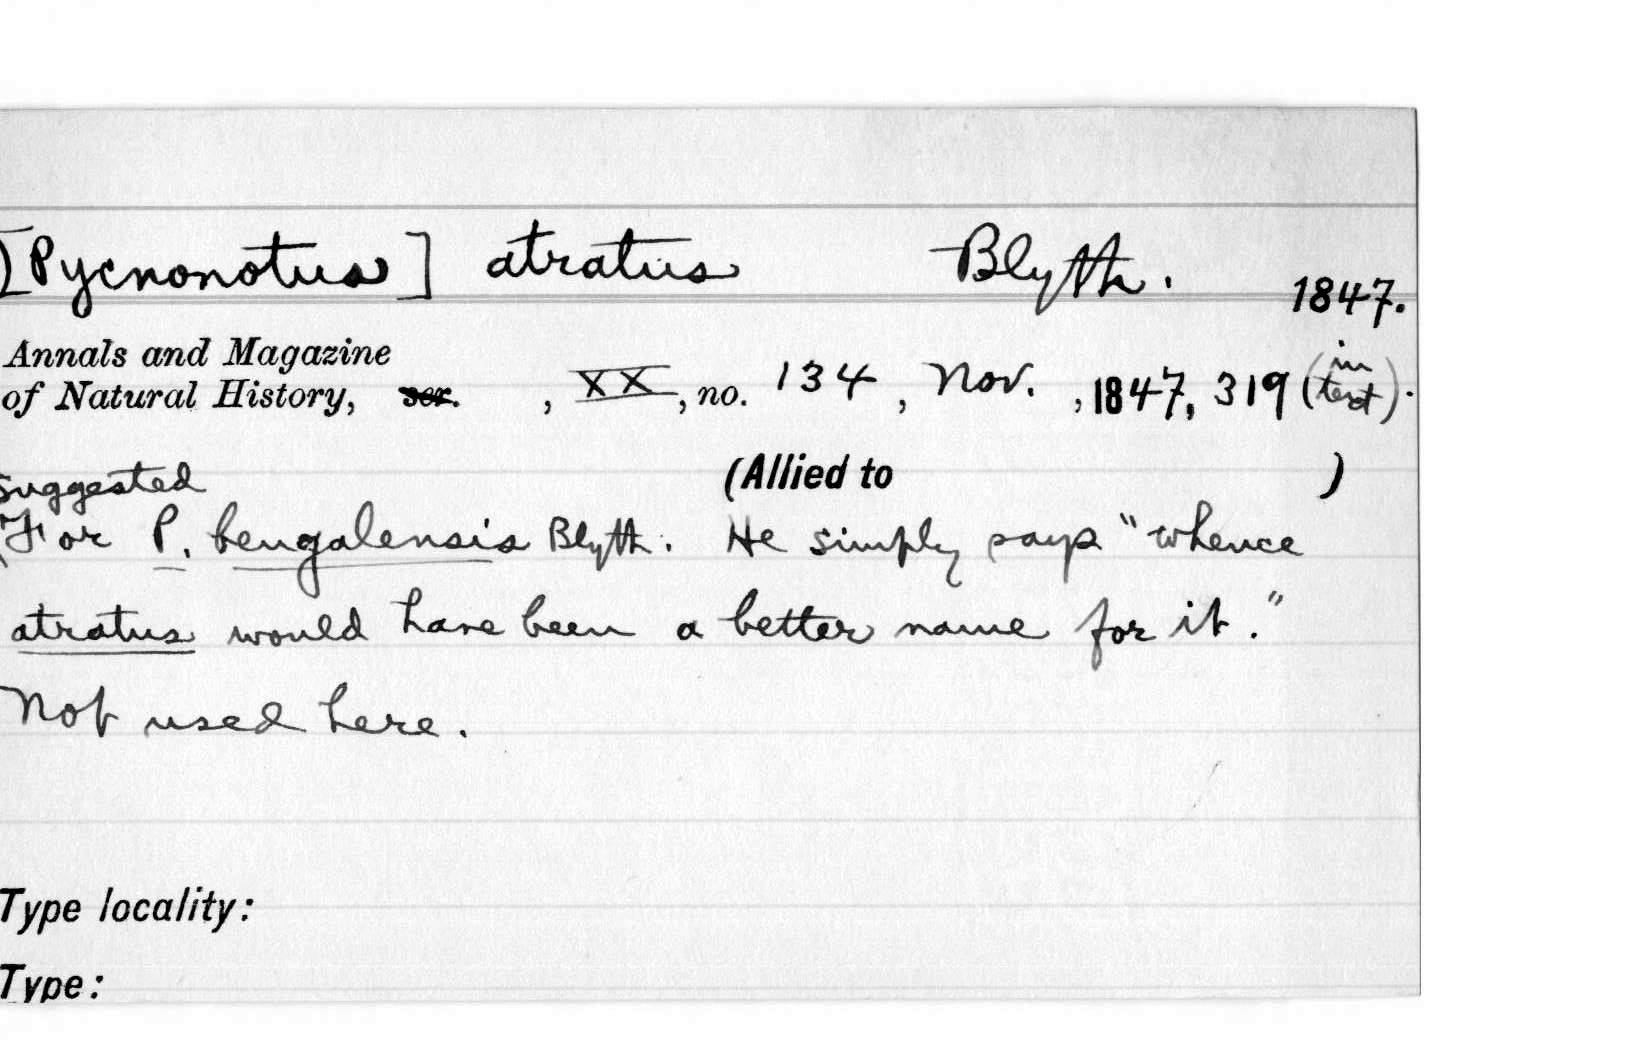 [Pycnonotus] atratus Blyth. 1847.
Annals and Magazine
of Natural History, ser. , XX, no. 134, Nov. , 1847, 319 (in text).
Suggested (Allied to )
For P. bengalensis Blyth. He simply says "whence
atratus would have been a better name for it."
Not used here.
Type locality:
Type: